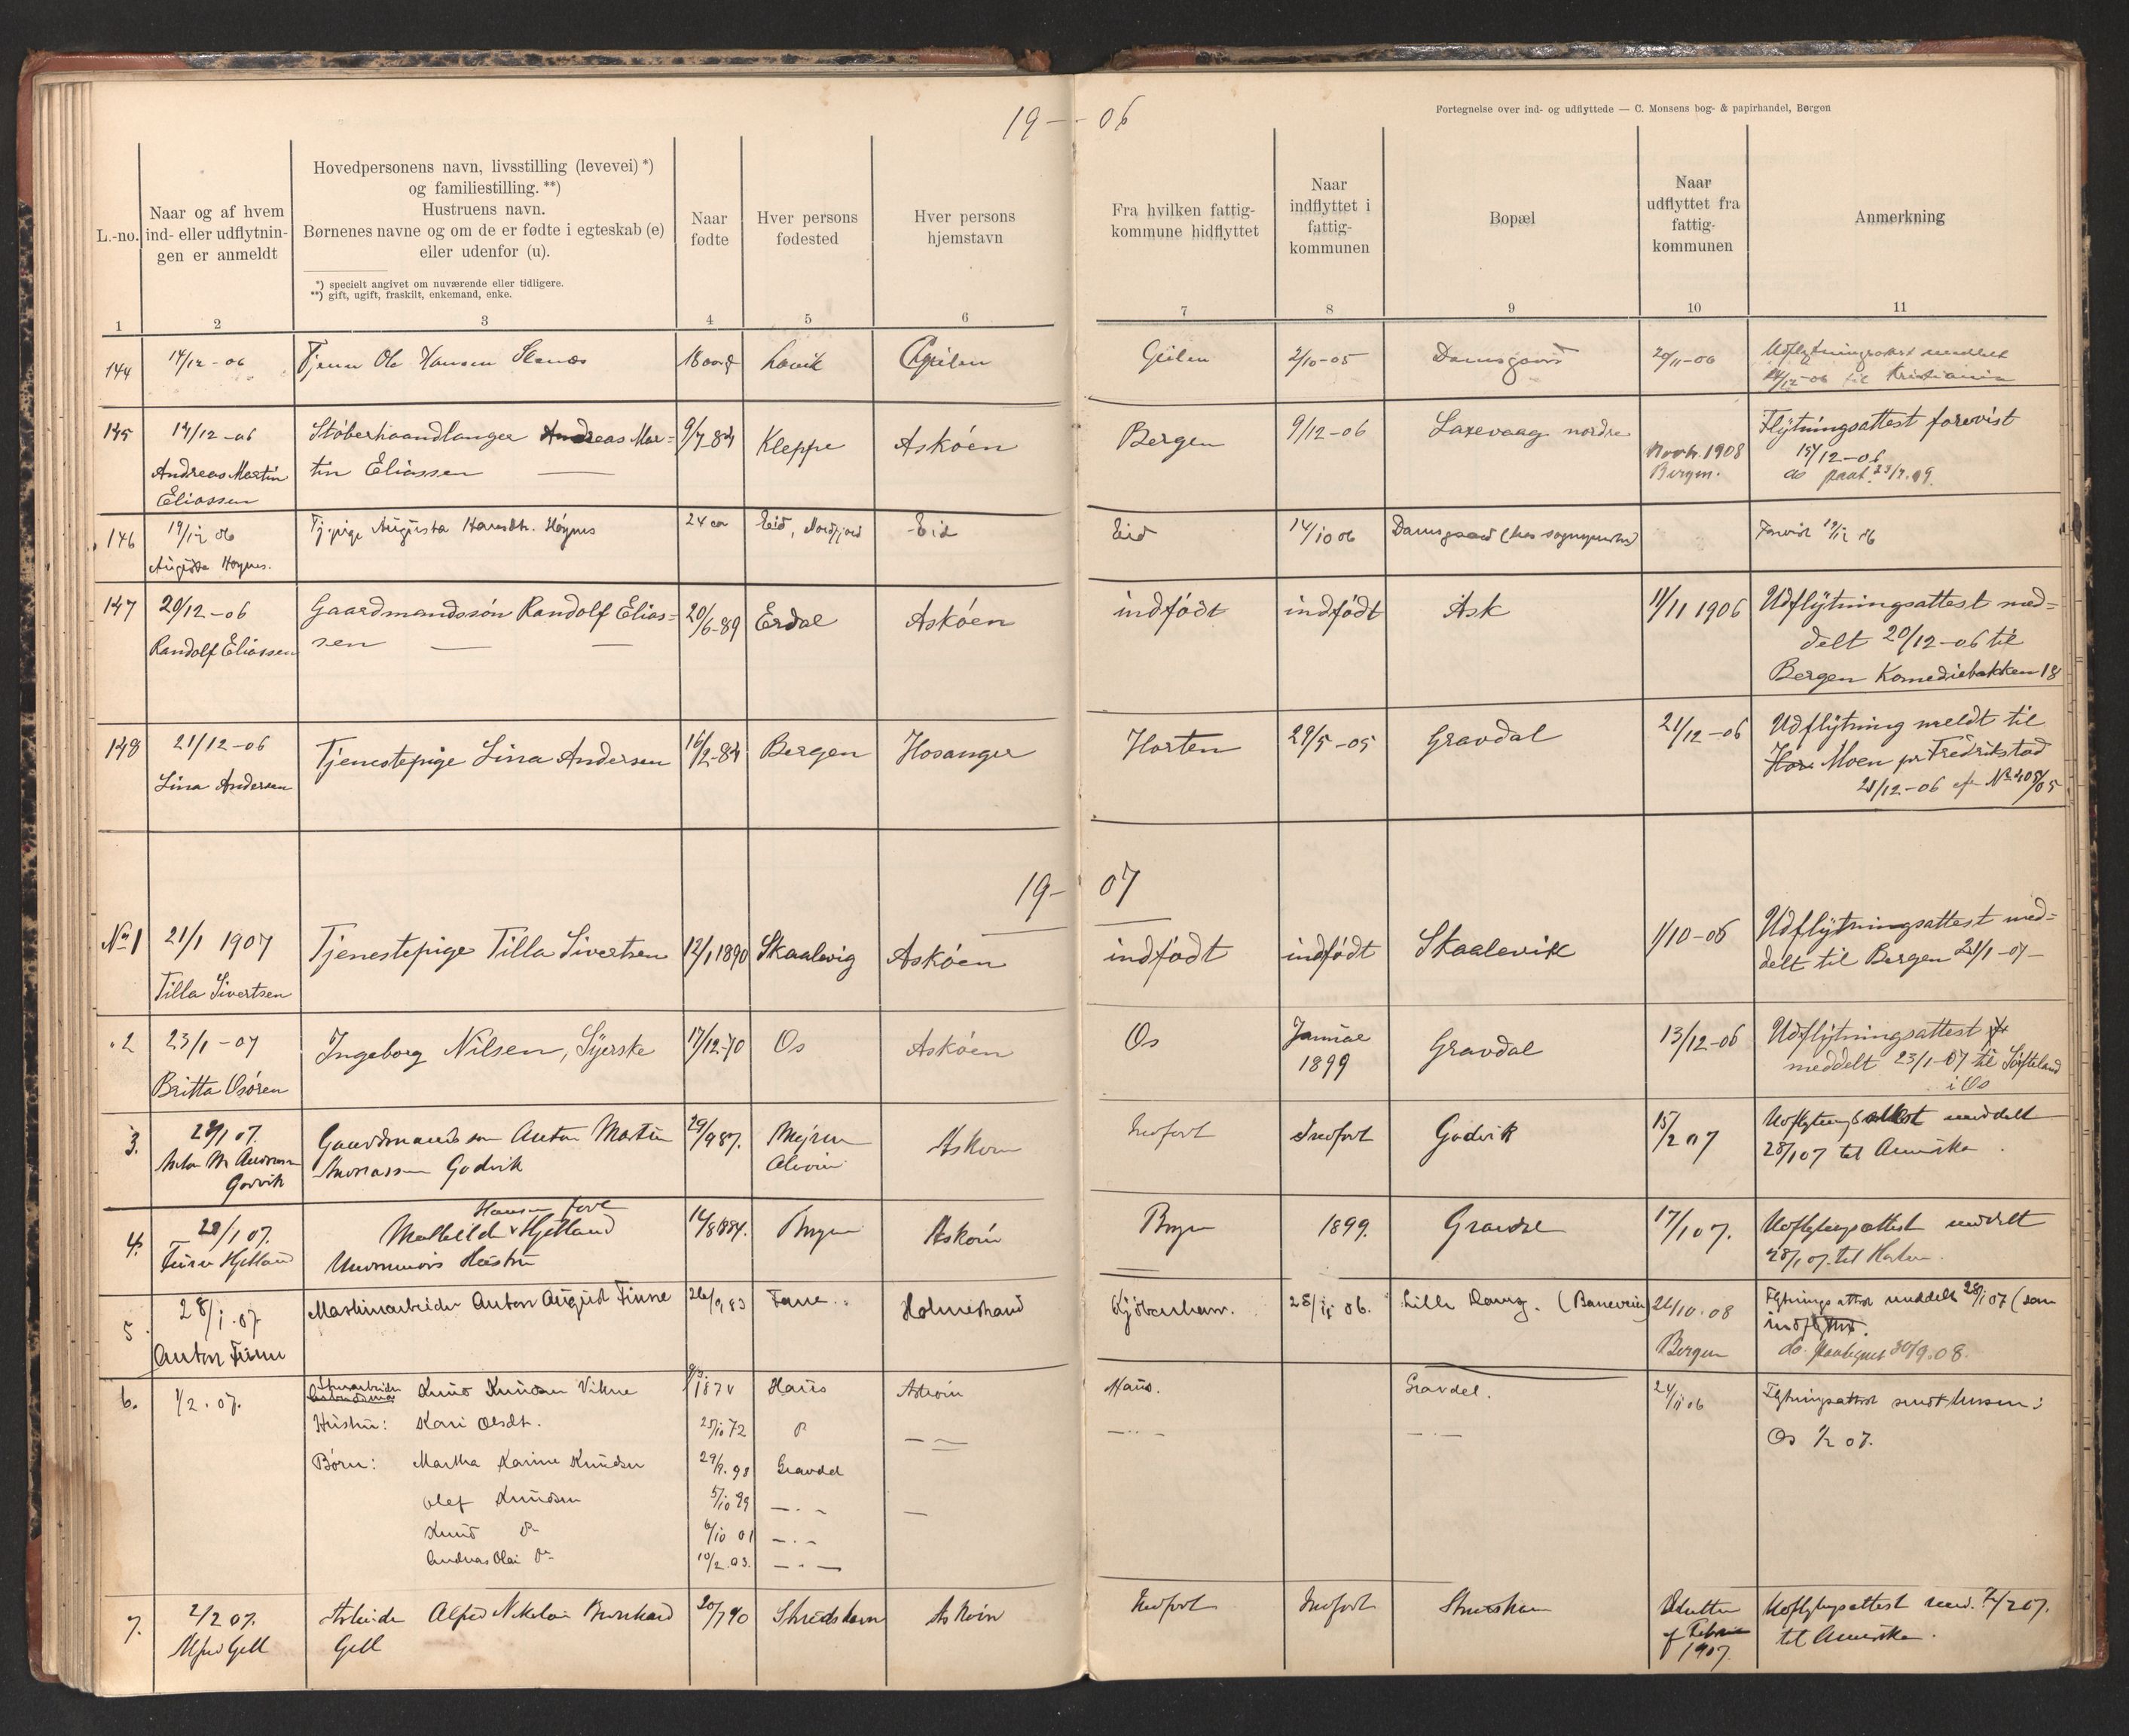 19-
- 06
Fortegnelse over ind- og udflyttede — C. Monsens bog- & papirhandel, Bergen
L.-no.
Naar og af hvem
ind- eller udflytnin-
gen er anmeldt
Hovedpersonens navn, livsstilling (levevei) *)
og familiestilling. **)
Hustruens navn.
Børnenes navne og om de er fødte i egteskab (e)
eller udenfor (u).
*) specielt angivet om nuværende eller tidligere.
**) gift, ugift, fraskilt, enkemand, enke.
Naar
fødte
Hver persons
fødested
Hver persons
hjemstavn
Fra hvilken fattig-
kommune hidflyttet
Naar
indflyttet i
fattig-
kommunen
Bopæl
Naar
udflyttet fra
fattig-
kommunen
Anmerkning
1 2 3 4 5 6 7 8 9 10 11
144 14/12-06 Ole Hansen Lavik 2/10-05 Damsgaard 20/11-06 Udflytningsattest meddelt
14/12-06 til Kristiania
145 14/12-06 Støberhaandlanger Andreas Mar- 9/7-84 Kleppe Askøen Bergen 9/12-06 Laxevaag nordre Flytningsattest forevist
Andreas Martin tin Eliassen Novb. 1908 14/12-06
Eliassen Bergen. do paat. 23/2.09.
146 19/12 06 Tj.pige Augusta Høynes 24 aar Eid, Nordfjord Eid Eid 14/10 06 Damsgaard (hos Forvist 19/12 06
Augusta Høynes.
147 20/12-06 Gaardmandssøn Randolf Elias- 20/6-89 Erdal Askøen indfødt indfødt Ask 11/11 1906 Udflytningsattest med-
Randolf Eliassen sen delt 20/12-06 til
Bergen Komediebakken 18
148 21/12-06 Tjenestepige Lina Andersen 16/2-84 Bergen Hosanger Horten 29/5-05 Gravdal 21/12-06 Udflytning meldt til
Lina Andersen Moen pr Fredrikstad
21/12-06
19-
07
No 1 21/1 1907 Tjenestepige Tilla Sivertsen 12/1 1890 Skaalevig Askøen indfødt indfødt Skaalevik 1/10-06 Udflytningsattest med-
Tilla Sivertsen delt til Bergen 21/1-07-
" 2 23/1-07 Ingeborg Nilsen, Syerske 17/12-70 Os Askøen Os Januar 1899 Gravdal 13/12-06 Udflytningsattest
Britta Osøren meddelt 23/1-07 til Søfteland
i Os
3. 28/1 07. Gaardmandssøn Anton Martin 29/9 87. Alvøen Askøen Indfødt Indfødt Godvik 15/2 07 Udflytningsattest meddelt
Anton M. Andreassen Andreassen Godvik 28/1 07 til Amerika.
Godvik
4. 28/1 07. Hansen født
Hjetland Mathilde Hjetland 14/8 1884. Bergen Askøen Bergen 1899. Gravdal 17/1 07. Udflytningsattest meddelt
Hustru 28/1 07. til
5 28/1.07 Maskinarbeider Anton August Finne 26/9 83 Fane Holmestrand Kjøbenhavn. Lille Damsg. 24/10.08 Flytningsattest meddelt 28/1 07 (som
Anton Finne Bergen indflyttet.
do. paategnet 30/9.08.
6. 1/2.07. Knud Knudsen Vikne Haus Askøen Haus. Gravdal. 24/11 06 Flytningsattest
Hustru: Kari Olsdt. 25/10 72 Os 1/2 07.
Børn: Martha Karine Knudsen 29/9.98 Gravdal
Olef Knudsen 5/10 99
Knud do 6/10 01
Andreas Olai do 10/2.03.
7. 2/2 07. Arbeider Alfred Nikolai Bernhard 20/7 90 Askøen Indfødt Indfødt Slutten Udflytningsattest med. 2/2 07.
Alfred Gell Gell af Februar til Amerika.
1907.